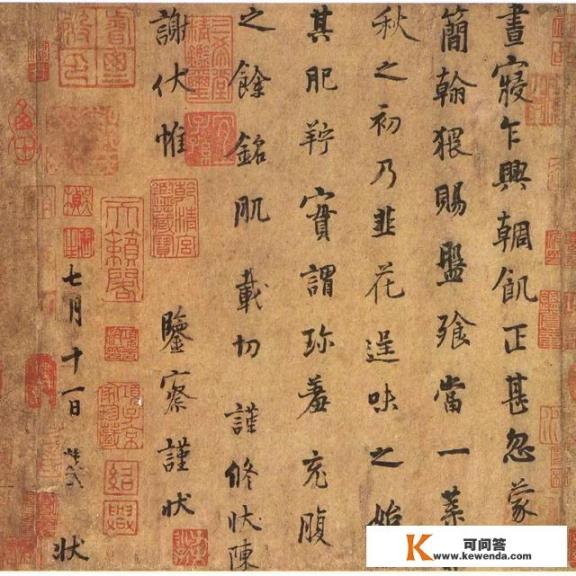 晝寢乍興輖飢正甚忽蒙
簡翰猥賜盤飧當一葉
秋之初乃韭花逞味之始
其肥羜實謂珍羞充腹
之餘銘肌載切謹修狀陳
謝伏惟
鑒察謹狀
七月十一日
狀
三希堂精鑑璽
宜子孫
天籟閣
可问答